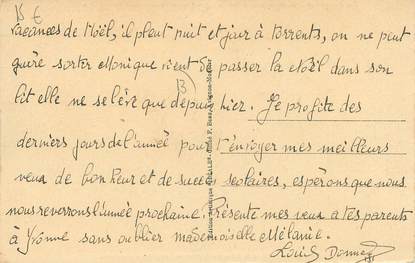 15 €
vacances de Noël, il pleut nuit et jour à torrents, on ne peut
guère sortir Monique vient de passer la Noël dans son
lit elle ne se lève que depuis hier. Je profite des
derniers jours de l'année pour t'envoyer mes meilleurs
vœux de bonheur et de succès scolaires, espérons que nous
nous reverrons l'année prochaine. Présente mes vœux a tes parents
à Yvonne sans oublier mademoiselle Mélanie.
Louis